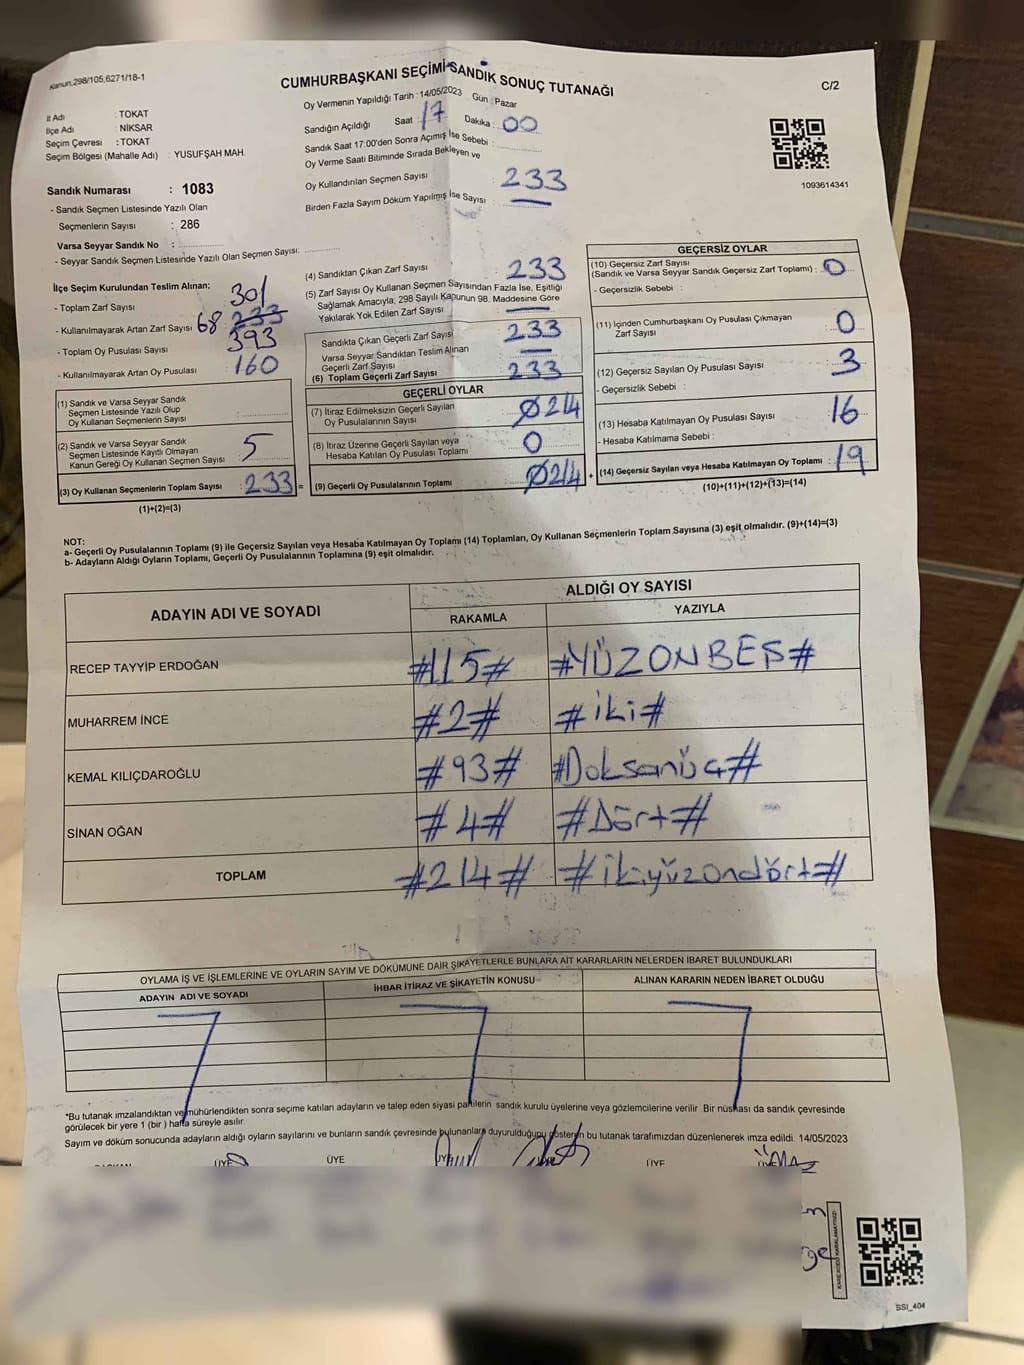 Kanun;298/105,6271/18-1
CUMHURBAŞKANI SEÇİMİ SANDIK SONUÇ TUTANAĞI
C/2
İl Adı : TOKAT
İlçe Adı : NİKSAR
Seçim Çevresi : TOKAT
Seçim Bölgesi (Mahalle Adı) : YUSUFŞAH MAH.
Oy Vermenin Yapıldığı Tarih : 14/05/2023 Gün : Pazar
Sandığın Açıldığı Saat : 17 Dakika : 00
Sandık Saat 17:00'den Sonra Açımış İse Sebebi :
Oy Verme Saati Bitiminde Sırada Bekleyen ve
Oy Kullandırılan Seçmen Sayısı : 233
Birden Fazla Sayım Döküm Yapılmış İse Sayısı : —
1093614341
Sandık Numarası : 1083
- Sandık Seçmen Listesinde Yazılı Olan
Seçmenlerin Sayısı : 286
Varsa Seyyar Sandık No :
- Seyyar Sandık Seçmen Listesinde Yazılı Olan Seçmen Sayısı:
İlçe Seçim Kurulundan Teslim Alınan;
- Toplam Zarf Sayısı : 301
- Kullanılmayarak Artan Zarf Sayısı : 68 233
- Toplam Oy Pusulası Sayısı : 393
- Kullanılmayarak Artan Oy Pusulası : 160
(1) Sandık ve Varsa Seyyar Sandık
Seçmen Listesinde Yazılı Olup
Oy Kullanan Seçmenlerin Sayısı :
(2) Sandık ve Varsa Seyyar Sandık
Seçmen Listesinde Kayıtlı Olmayan
Kanun Gereği Oy Kullanan Seçmen Sayısı : 5
(3) Oy Kullanan Seçmenlerin Toplam Sayısı : 233
(1)+(2)=(3)
(4) Sandıktan Çıkan Zarf Sayısı : 233
(5) Zarf Sayısı Oy Kullanan Seçmen Sayısından Fazla İse, Eşitliği
Sağlamak Amacıyla; 298 Sayılı Kanunun 98. Maddesine Göre
Yakılarak Yok Edilen Zarf Sayısı : —
Sandıkta Çıkan Geçerli Zarf Sayısı : 233
Varsa Seyyar Sandıktan Teslim Alınan
Geçerli Zarf Sayısı : —
(6) Toplam Geçerli Zarf Sayısı : 233
GEÇERLİ OYLAR
(7) İtiraz Edilmeksizin Geçerli Sayılan
Oy Pusulalarının Sayısı : 214
(8) İtiraz Üzerine Geçerli Sayılan veya
Hesaba Katılan Oy Pusulası Toplamı : 0
= (9) Geçerli Oy Pusulalarının Toplamı : 214
GEÇERSİZ OYLAR
(10) Geçersiz Zarf Sayısı
(Sandık ve Varsa Seyyar Sandık Geçersiz Zarf Toplamı) : 0
- Geçersizlik Sebebi :
(11) İçinden Cumhurbaşkanı Oy Pusulası Çıkmayan
Zarf Sayısı : 0
(12) Geçersiz Sayılan Oy Pusulası Sayısı : 3
- Geçersizlik Sebebi :
(13) Hesaba Katılmayan Oy Pusulası Sayısı : 16
- Hesaba Katılmama Sebebi :
+ (14) Geçersiz Sayılan veya Hesaba Katılmayan Oy Toplamı : 19
(10)+(11)+(12)+(13)=(14)
NOT:
a- Geçerli Oy Pusulalarının Toplamı (9) ile Geçersiz Sayılan veya Hesaba Katılmayan Oy Toplamı (14) Toplamları, Oy Kullanan Seçmenlerin Toplam Sayısına (3) eşit olmalıdır. (9)+(14)=(3)
b- Adayların Aldığı Oyların Toplamı, Geçerli Oy Pusulalarının Toplamına (9) eşit olmalıdır.
ADAYIN ADI VE SOYADI
ALDIĞI OY SAYISI
RAKAMLA YAZIYLA
RECEP TAYYİP ERDOĞAN #115# #YÜZONBEŞ#
MUHARREM İNCE #2# #iki#
KEMAL KILIÇDAROĞLU #93# #Doksanüç#
SİNAN OĞAN #4# #Dört#
TOPLAM #214# #ikiyüzondört#
OYLAMA İŞ VE İŞLEMLERİNE VE OYLARIN SAYIM VE DÖKÜMÜNE DAİR ŞİKAYETLERLE BUNLARA AİT KARARLARIN NELERDEN İBARET BULUNDUKLARI
ADAYIN ADI VE SOYADI İHBAR İTİRAZ VE ŞİKAYETİN KONUSU ALINAN KARARIN NEDEN İBARET OLDUĞU
*Bu tutanak imzalandıktan ve mühürlendikten sonra seçime katılan adayların ve talep eden siyasi partilerin sandık kurulu üyelerine veya gözlemcilerine verilir .Bir nüshası da sandık çevresinde
görülecek bir yere 1 (bir ) hafta süreyle asılır.
Sayım ve döküm sonucunda adayların aldığı oyların sayılarını ve bunların sandık çevresinde bulunanlara duyurulduğunu gösteren bu tutanak tarafımızdan düzenlenerek imza edildi. 14/05/2023
BAŞKAN ÜYE ÜYE ÜYE ÜYE ÜYE
KARE KODU KARALAMAYINIZ!
SSI_404